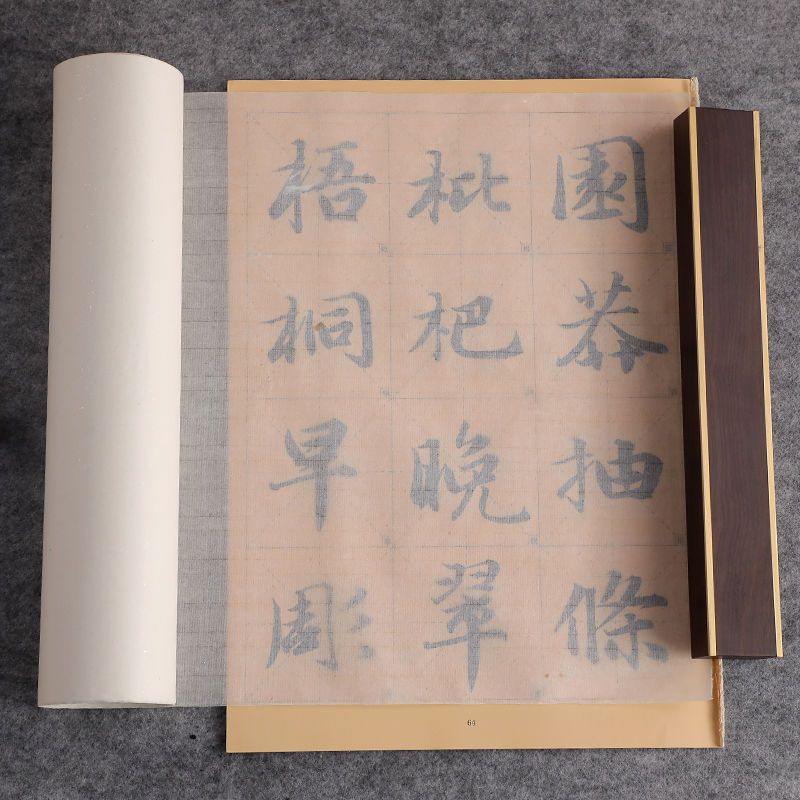 園莽抽條
枇杷晚翠
梧桐早彫
64